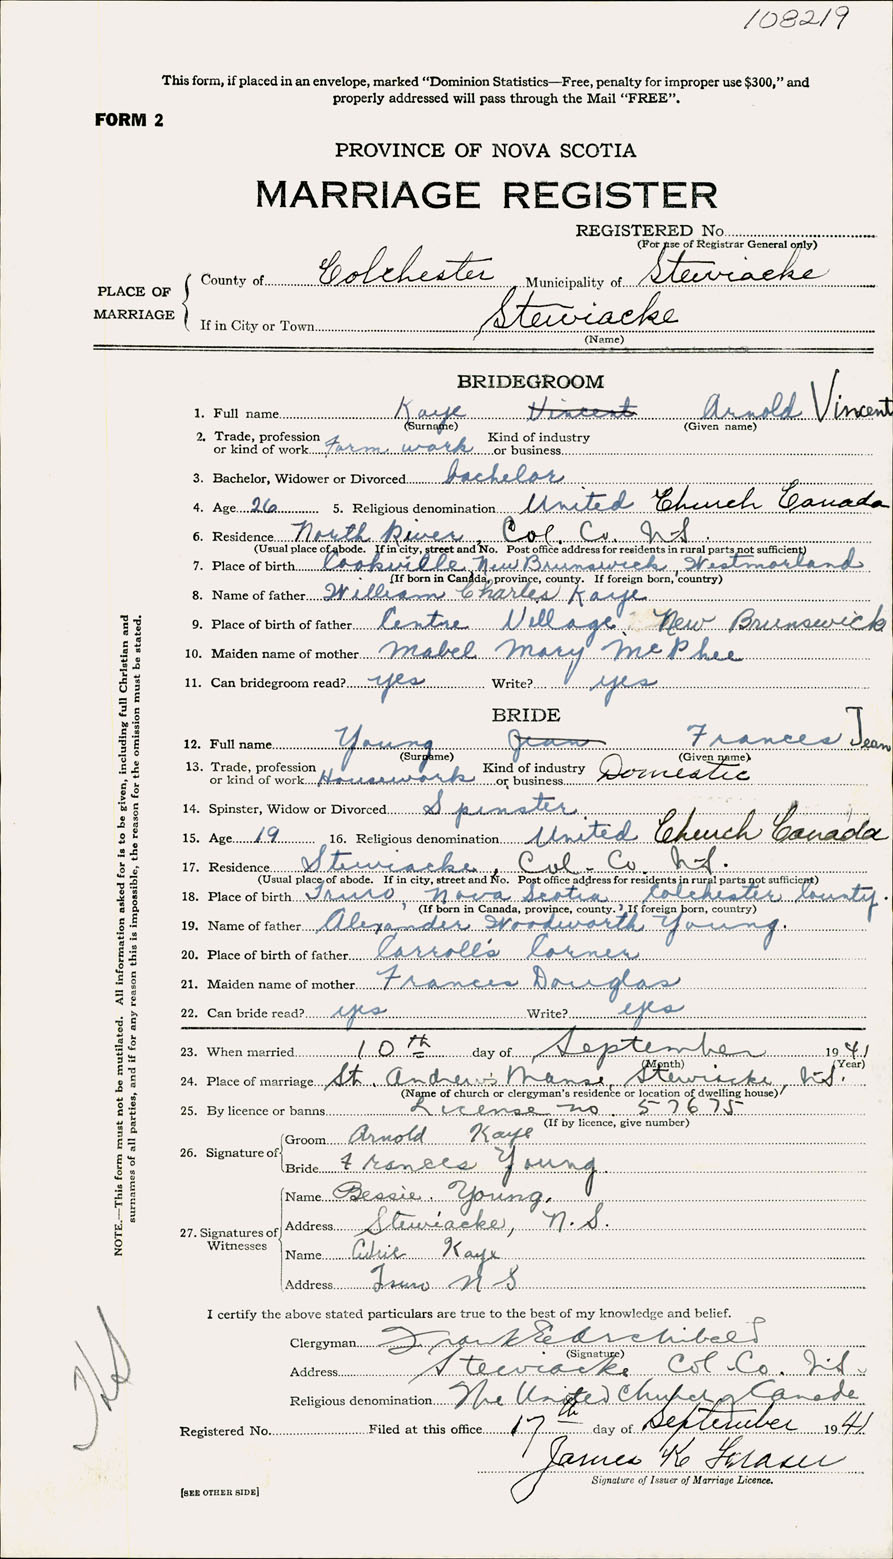 108219
This form, if placed in an envelope, marked "Dominion Statistics—Free, penalty for improper use $300," and
properly addressed will pass through the Mail "FREE".
FORM 2
PROVINCE OF NOVA SCOTIA
MARRIAGE REGISTER
REGISTERED No.
(For use of Registrar General only)
PLACE OF MARRIAGE
County of Colchester Municipality of Stewiacke
If in City or Town Stewiacke
(Name)
BRIDEGROOM
1. Full name Kaye Vincent Arnold Vincent
(Surname) (Given name)
2. Trade, profession or kind of work Farm work Kind of industry or business
3. Bachelor, Widower or Divorced bachelor
4. Age 26 5. Religious denomination United Church Canada
6. Residence North River, Col. Co. N.S.
(Usual place of abode. If in city, street and No. Post office address for residents in rural parts not sufficient)
7. Place of birth Cookville, New Brunswick Westmorland
(If born in Canada, province, county. If foreign born, country)
8. Name of father William Charles Kaye
9. Place of birth of father Centre Village New Brunswick
10. Maiden name of mother Mabel Mary McPhee
11. Can bridegroom read? yes Write? yes
BRIDE
12. Full name Young Jean Frances Jean
(Surname) (Given name)
13. Trade, profession or kind of work Housework Kind of industry or business Domestic
14. Spinster, Widow or Divorced Spinster
15. Age 19 16. Religious denomination United Church Canada
17. Residence Stewiacke, Col. Co. N.S.
(Usual place of abode. If in city, street and No. Post office address for residents in rural parts not sufficient)
18. Place of birth Truro, Nova Scotia Colchester County.
(If born in Canada, province, county. If foreign born, country)
19. Name of father Alexander Woodworth Young.
20. Place of birth of father Carroll's Corner
21. Maiden name of mother Frances Douglas
22. Can bride read? yes Write? yes
23. When married 10th day of September 1941
(Month) (Year)
24. Place of marriage St. Andrew's Manse, Stewiacke, N.S.
(Name of church or clergyman's residence or location of dwelling house)
25. By licence or banns License no. 57675
(If by licence, give number)
26. Signature of
Groom Arnold Kaye
Bride Frances Young.
27. Signatures of Witnesses
Name Bessie Young.
Address Stewiacke, N.S.
Name Kaye
Address Truro N S
I certify the above stated particulars are true to the best of my knowledge and belief.
Clergyman Frank E Archibald
(Signature)
Address Stewiacke Col. Co. N.S.
Religious denomination The United Church of Canada
Registered No. Filed at this office 17th day of September 1941
James K Fraser
Signature of Issuer of Marriage Licence.
[SEE OTHER SIDE]
NOTE.—This form must not be mutilated. All information asked for is to be given, including full Christian and
surnames of all parties, and if for any reason this is impossible, the reason for the omission must be stated.